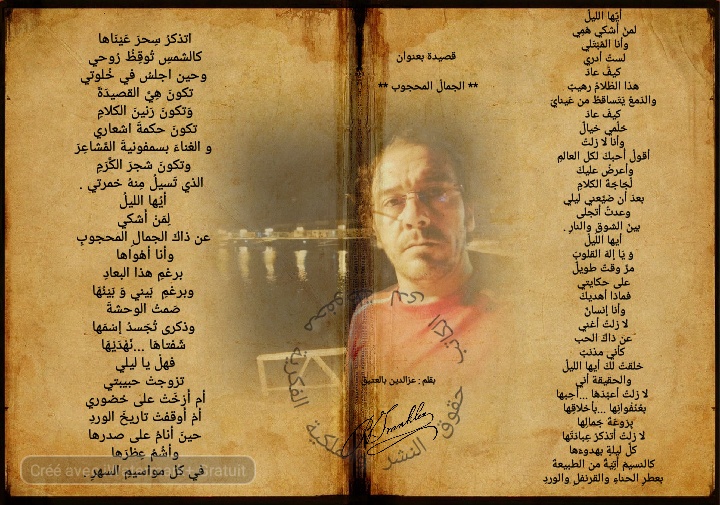 قصيدة بعنوان
** الجمالُ المحجوب **
أيّها الليلُ
لمن أشكي همّي
وأنا المُبْتَلي
لستُ أدري
كيفَ عادَ
هذا الظلامُ رهيبٌ
والدّمعُ يَتَساقطُ من عَينايَ
كيفَ عادَ
حلْمي خيالٌ
وأنا لا زلتُ
أقولُ أحبكَ لكل العالمِ
وأعرضُ عليكَ
لَجَاجَةَ الكلامِ
بعدَ أن ضيّعني ليلي
وعدتُ أتجلى
بينَ الشوقِ والنارِ .
أيها الليلُ
وَ يَا إلهَ القلوبِ
مرَّ وقتٌ طويلٌ
على حكايتي
فماذا أهديكَ
وأنا إنسانٌ
لا زلتُ أغني
عن ذاكَ الحب
كأني مذنبٌ
خلقتُ لكَ أيها الليلُ
والحقيقة أني
لا زلتُ أعبدُها ...أحبها
بعُنْفُوانِها ...بأخلاقِها
بِرَوعَةِ جَمالِها
لا زلتُ أتذكرُ عباءتُها
كلَّ ليلةٍ بهدوءها
كالنسيمِ آتِيَةٌ من الطبيعة
بعطرِ الحناءِ والقرنفلِ والوردِ
اتذكرُ سِحرَ عَيْنَاها
كالشمسِ تُوقِظُ رُوحي
وحين اجلسُ في خُلوتي
تكونَ هِيَّ القصيدَةُ
وَتكونَ رَنينَ الكلامِ
تكون حكمةَ اشعاري
و الغناءَ بسمفونيةَ المَشاعِرَ
وتكونَ شجرَ الكَْرَمِ
الذي تَسيلُ مِنهُ خمرتي .
أيّها الليلُ
لِمَنْ أشكي
عن ذاكَ الجمالِ المحجوبِ
وأنا أهْواها
برغمِ هذا البعادِ
وبرغمِ بَيني وَ بَيْنَهَا
صَمتُ الوحشةَ
وذكرى تُجَسدُ إسْمَها
شَفَتاهَا ...نَهْدَيْهَا
فهلْ يا ليلي
تزوجتْ حبيبتي
أم أرّخَتْ على حَضوري
أمْ أوقفتْ تاريخَ الوردِ
حينَ أنامُ على صدرها
وأشُمُّ عِطْرَها
في كلّ مواسيمِ السهرِ .
بقلم : عزالدين بالعتيق
حقوق النشر والملكية الفكرية محفوظة لدى
Créé avec
Gratuit